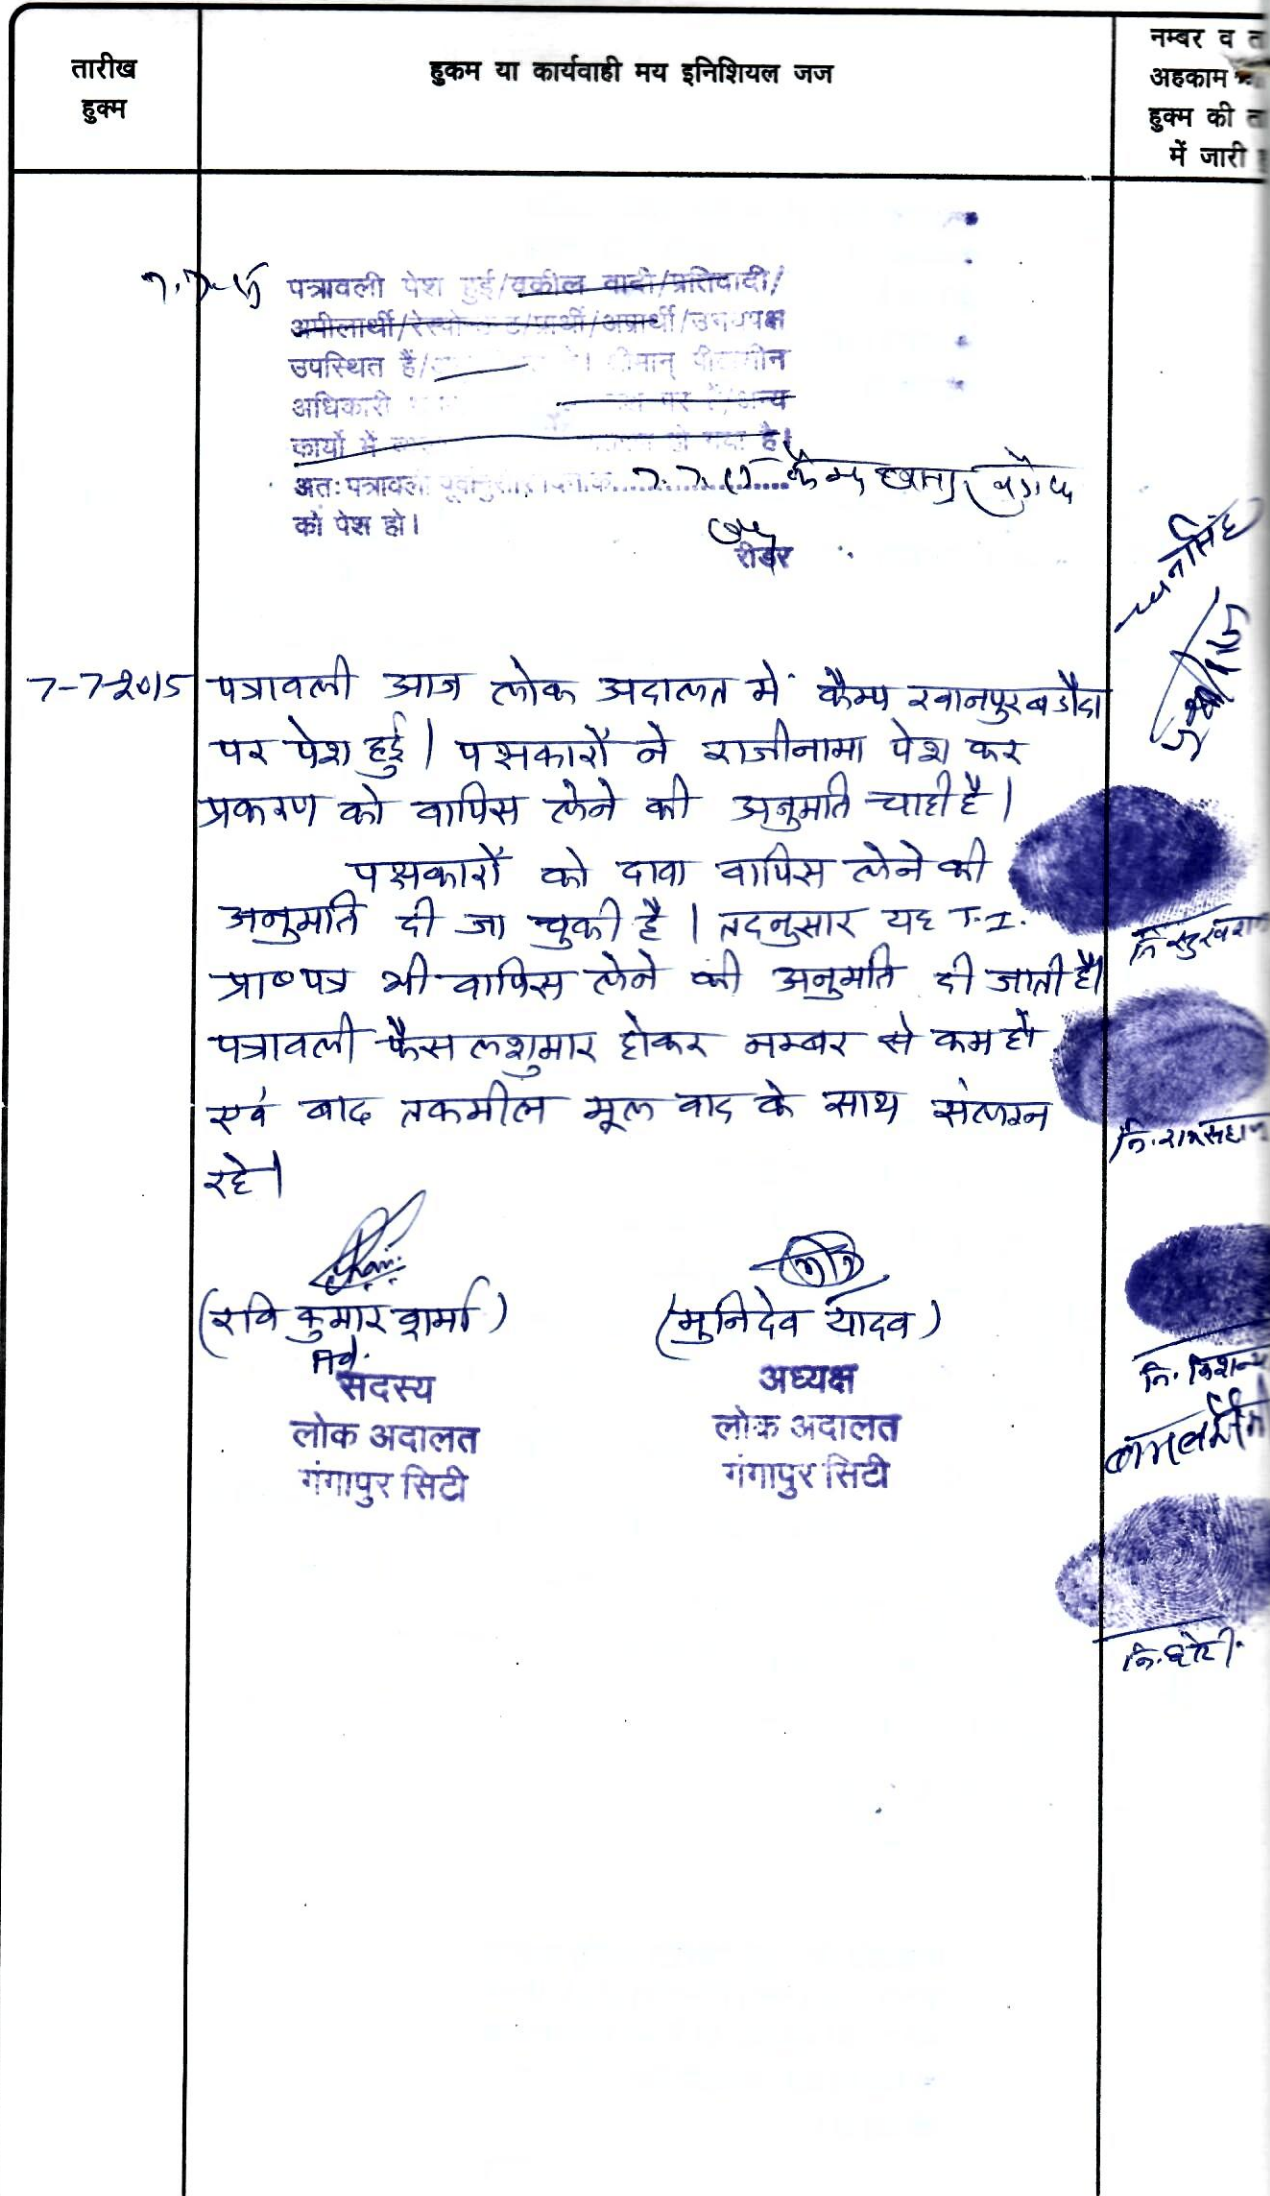 तारीख
हुक्म
हुकम या कार्यवाही मय इनिशियल जज
नम्बर व
अहकाम
हुक्म की
में जारी
पत्रावली पेश हुई/वकील वादी/प्रतिवादी/
अपीलार्थी/प्रार्थी/अप्रार्थी/उभयपक्ष
उपस्थित हैं/
अधिकारी पर हैं/अन्य
कार्यो में है।
अतः पत्रावली 7.7.15 कैम्प
को पेश हो।
रीडर
7-7-2015 पत्रावली आज लोक अदालत में कैम्प खानपुर बडौदा
पर पेश हुई। पक्षकारों ने राजीनामा पेश कर
प्रकरण को वापिस लेने की अनुमति चाही है।
पक्षकारों को दावा वापिस लेने की
अनुमति दी जा चुकी है। तदनुसार यह T.I.
प्रा०पत्र भी वापिस लेने की अनुमति दी जाती है।
पत्रावली फैसलशुमार होकर नम्बर से कम हो
एवं बाद तकमील मूल वाद के साथ संलग्न
रहे।
(रवि कुमार शर्मा)
सदस्य
लोक अदालत
गंगापुर सिटी
(मुनिदेव यादव)
अध्यक्ष
लोक अदालत
गंगापुर सिटी
नि.
नि. रामसहाय
नि. किशन
नि.